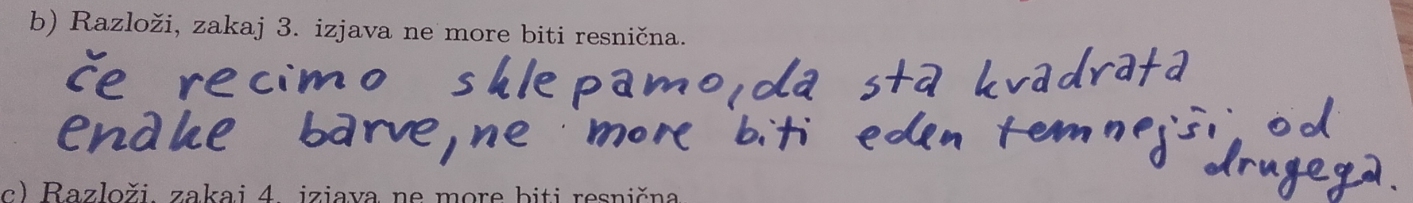 b) Razloži, zakaj 3. izjava ne more biti resnična.
če recimo sklepamo, da sta kvadrata
enake barve, ne more biti eden temnejši od
drugega.
c) Razloži, zakaj 4. izjava ne more biti resnična